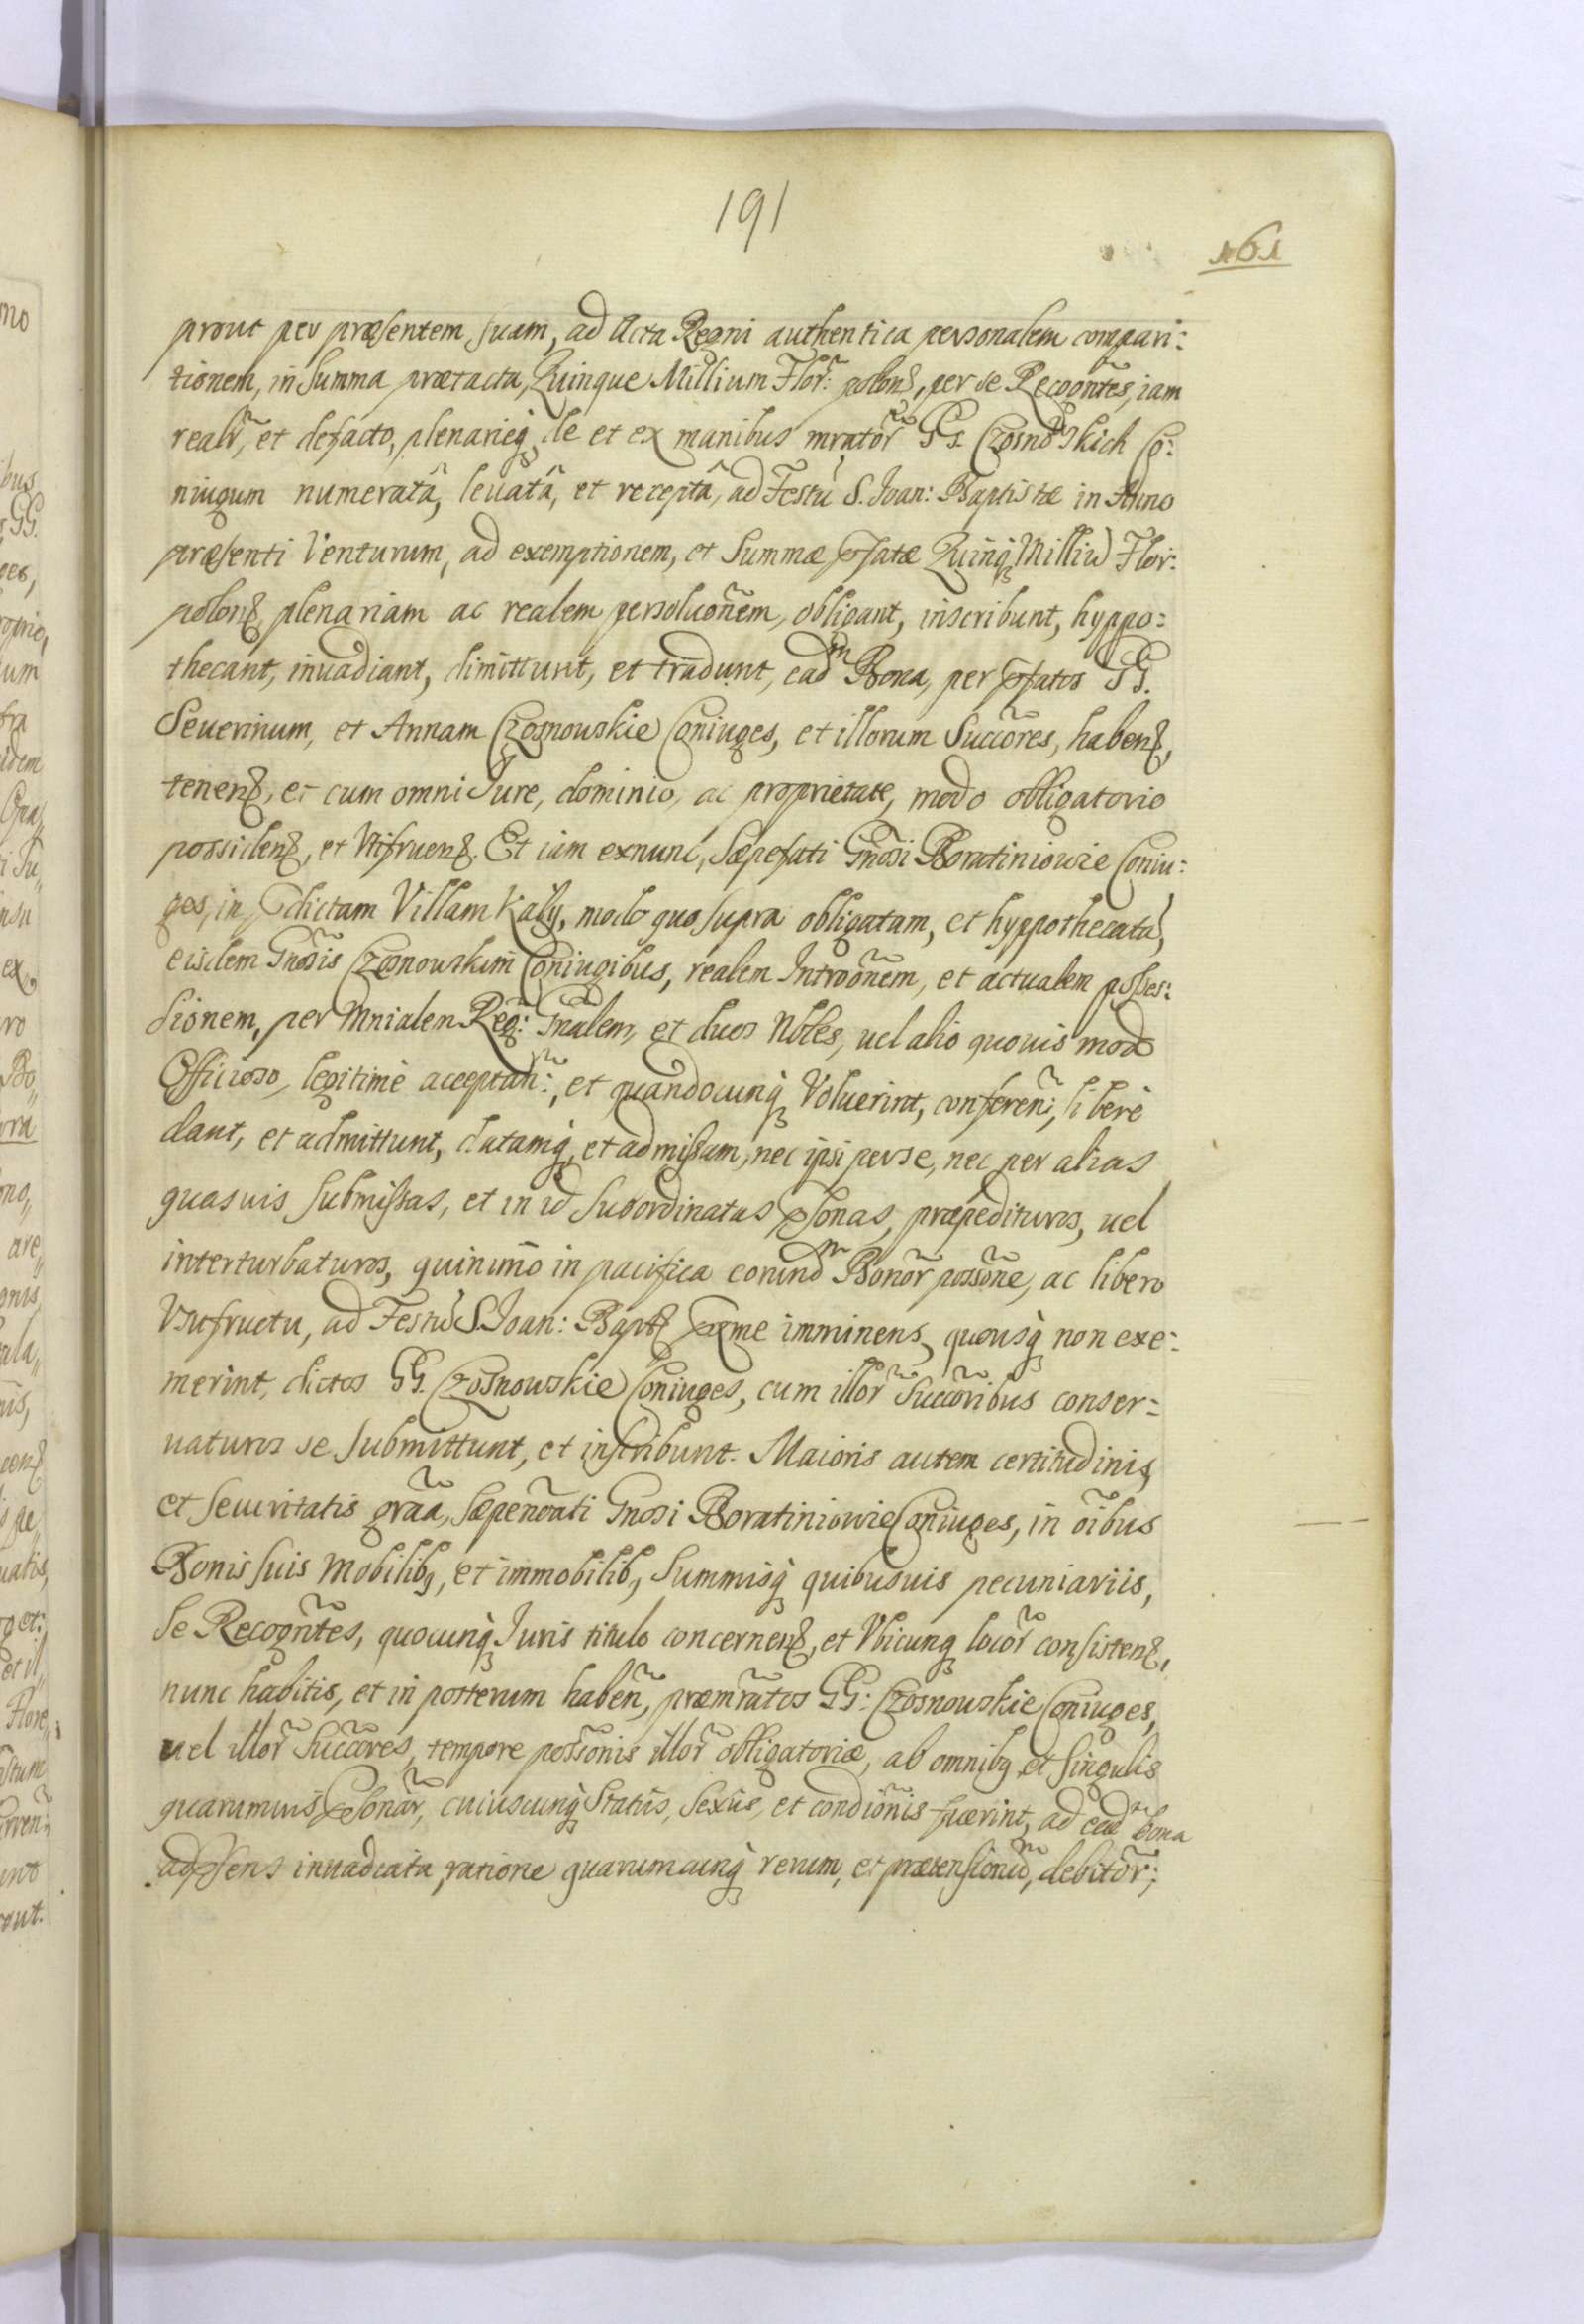 191
161
prout per præsentem suam, ad Acta Regni authentica personalem compari:
tionem, in Summa prætacta, Quinque Millium Flor: polon, per se Recogntes, iam
realr, et defacto, plenarieq, de et ex manibus mrator GG. Czosnowskich Co:
niugum numerata, leuata, et recepta, ad Festu S. Ioan: Baptistæ in Anno
præsenti Venturum, ad exemptionem, et Summæ pfatæ Quinq Milliu Flor:
polon plenariam ac realem persoluonem, obligant, inscribunt, hyppo:
thecant, inuadiant, dimittunt, et tradunt, eadm Bona, per pfatos GG.
Seuerinum, et Annam Czosnowskie Coniuges, et illorum Succores, haben,
tenen, et cum omni Iure, dominio, ac proprietate, modo obligatorio
possiden, et Vtifruen. Et iam exnunc, Sæpefati Gnosi Boratiniowie Coniu:
ges, in pdictam Villam Kaly, modo quo supra obligatam, et hyppothecata,
eisdem Gnosis Czosnowskim Coniugibus, realem Introonem, et actualem posses:
sionem, per Mnialem Reg: Gnalem, et duos Nbles, uel alio quouis modo
Officioso, legitimè acceptan:, et quandocunq Voluerint, conferen:, liberè
dant, et admittunt, datamq, et admissam, nec ipsi per se, nec per alias
quasuis submissas, et in id subordinatas psonas, præpedituros, uel
interturbaturos, quinimo in pacifica eorundm Bonor possone, ac libero
Vsufructu, ad Festu S. Ioan: Bapt pxme imminens, quousq non exe:
merint, dictos GG. Czosnowskie Coniuges, cum illor Succoribus conser:
uaturos se submittunt, et inscribunt. Maioris autem certitudinis,
et securitatis graa, Sæpenoati Gnosi Boratiniowie Coniuges, in oibus
Bonis suis mobilib, et immobilib, Summisq quibusuis pecuniariis,
se Recogntes, quocunq Iuris titulo concernen, et Vbicunq locor consisten,
nunc habitis, et in posterum haben, præmratos GG: Czosnowskie Coniuges,
uel illor Succores, tempore possonis illor obligatoriæ, ab omnibq et singulis
quarumuis psonar, cuiuscunq Status, Sexus, et condionis fuerint, ad eadm Bona
ad psens inuadiata, ratione quarumcunq rerum, et prætensionu, debitor;